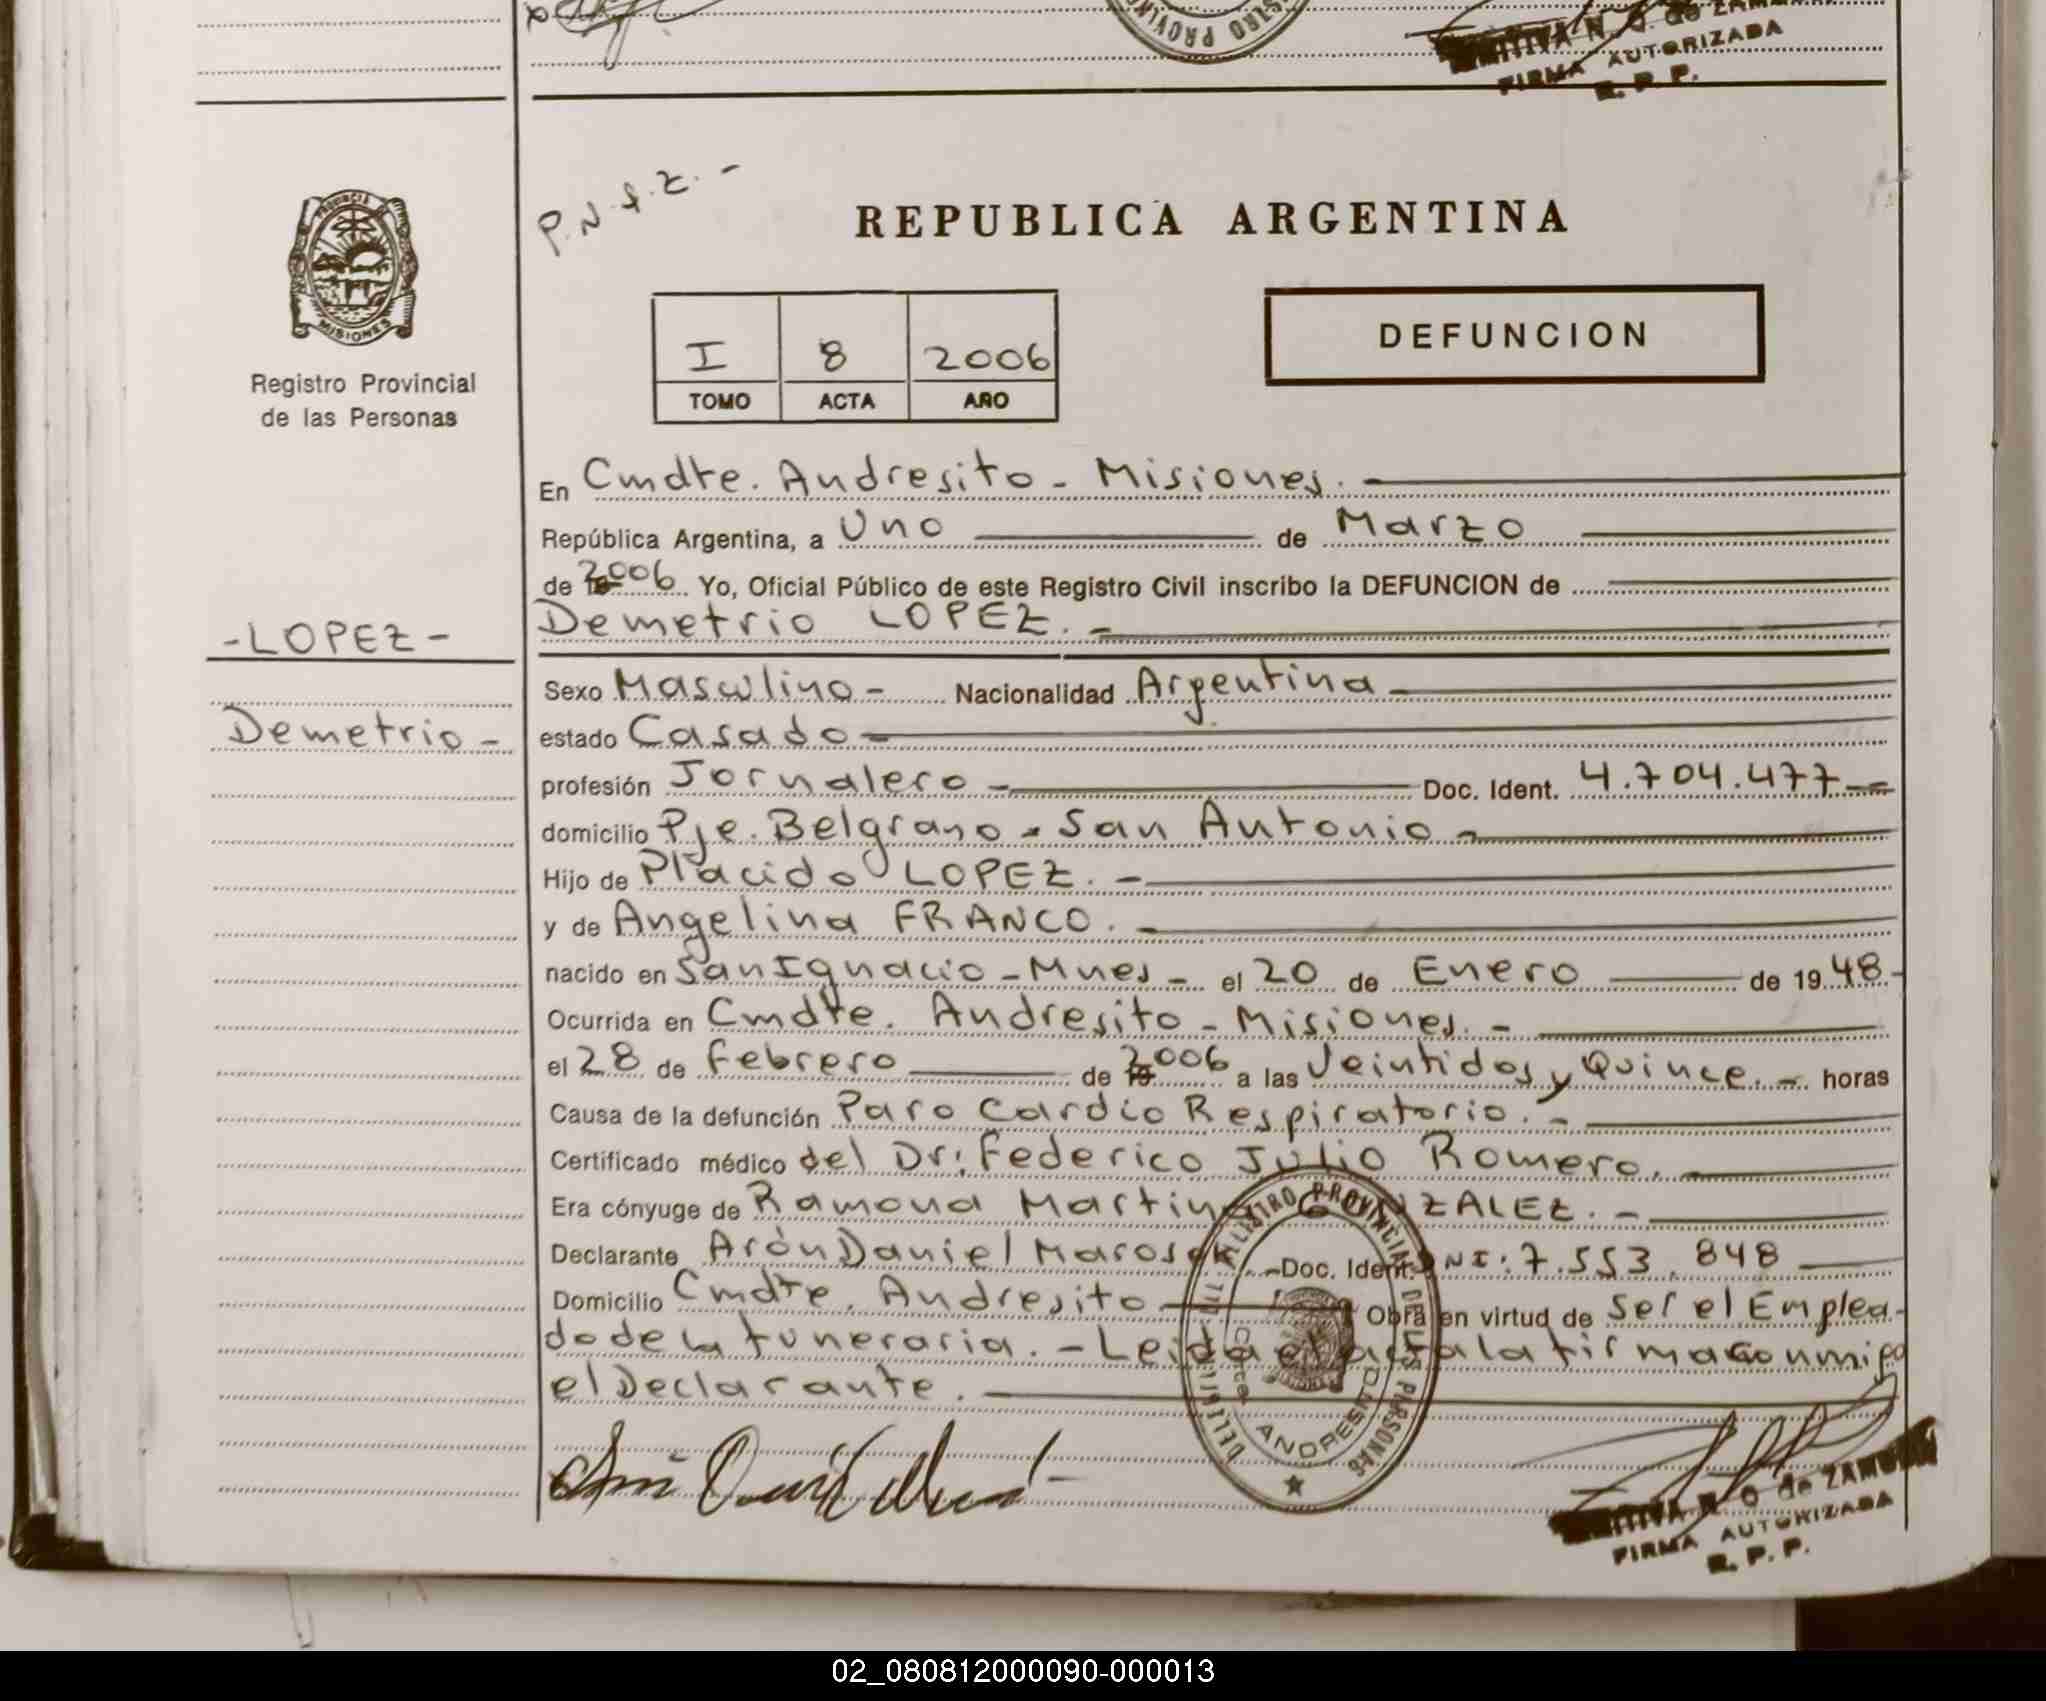 STRO PROVINC
N. O. de ZAM
FIRMA AUTORIZADA
R. P. P.
P.N.
REPUBLICA ARGENTINA
PROVINCIA D
MISIONES
Registro Provincial
de las Personas
I 8 2006
TOMO ACTA AÑO
DEFUNCION
En Cmdte. Andresito - Misiones. -
República Argentina, a Uno de Marzo
de 2006 Yo, Oficial Público de este Registro Civil inscribo la DEFUNCION de
-LOPEZ- Demetrio LOPEZ. -
Sexo Masculino - Nacionalidad Argentina -
Demetrio - estado Casado -
profesión Jornalero - Doc. Ident. 4.704.477 -
domicilio Pje. Belgrano - San Antonio -
Hijo de Placido LOPEZ. -
y de Angelina FRANCO. -
nacido en San Ignacio - Mnes - el 20 de Enero de 19 48 -
Ocurrida en Cmdte. Andresito - Misiones. -
el 28 de Febrero de 2006 a las Veintidos y Quince. - horas
Causa de la defunción Paro Cardio Respiratorio. -
Certificado médico del Dr: Federico Julio Romero. -
Era cónyuge de Ramona Martina GONZALEZ. -
Declarante Arón Daniel Doc. Ident. DNI: 7.553.848
Domicilio Cmdte. Andresito Obra en virtud de Ser el Emplea-
do de la funeraria. - Leida el acta la firma conmigo
el Declarante.
REGISTRO PROVINCIAL DE LAS PERSONAS
Cmte. ANDRESITO
N. O de ZAMUDI
FIRMA AUTORIZADA
R. P. P.
02_080812000090-000013